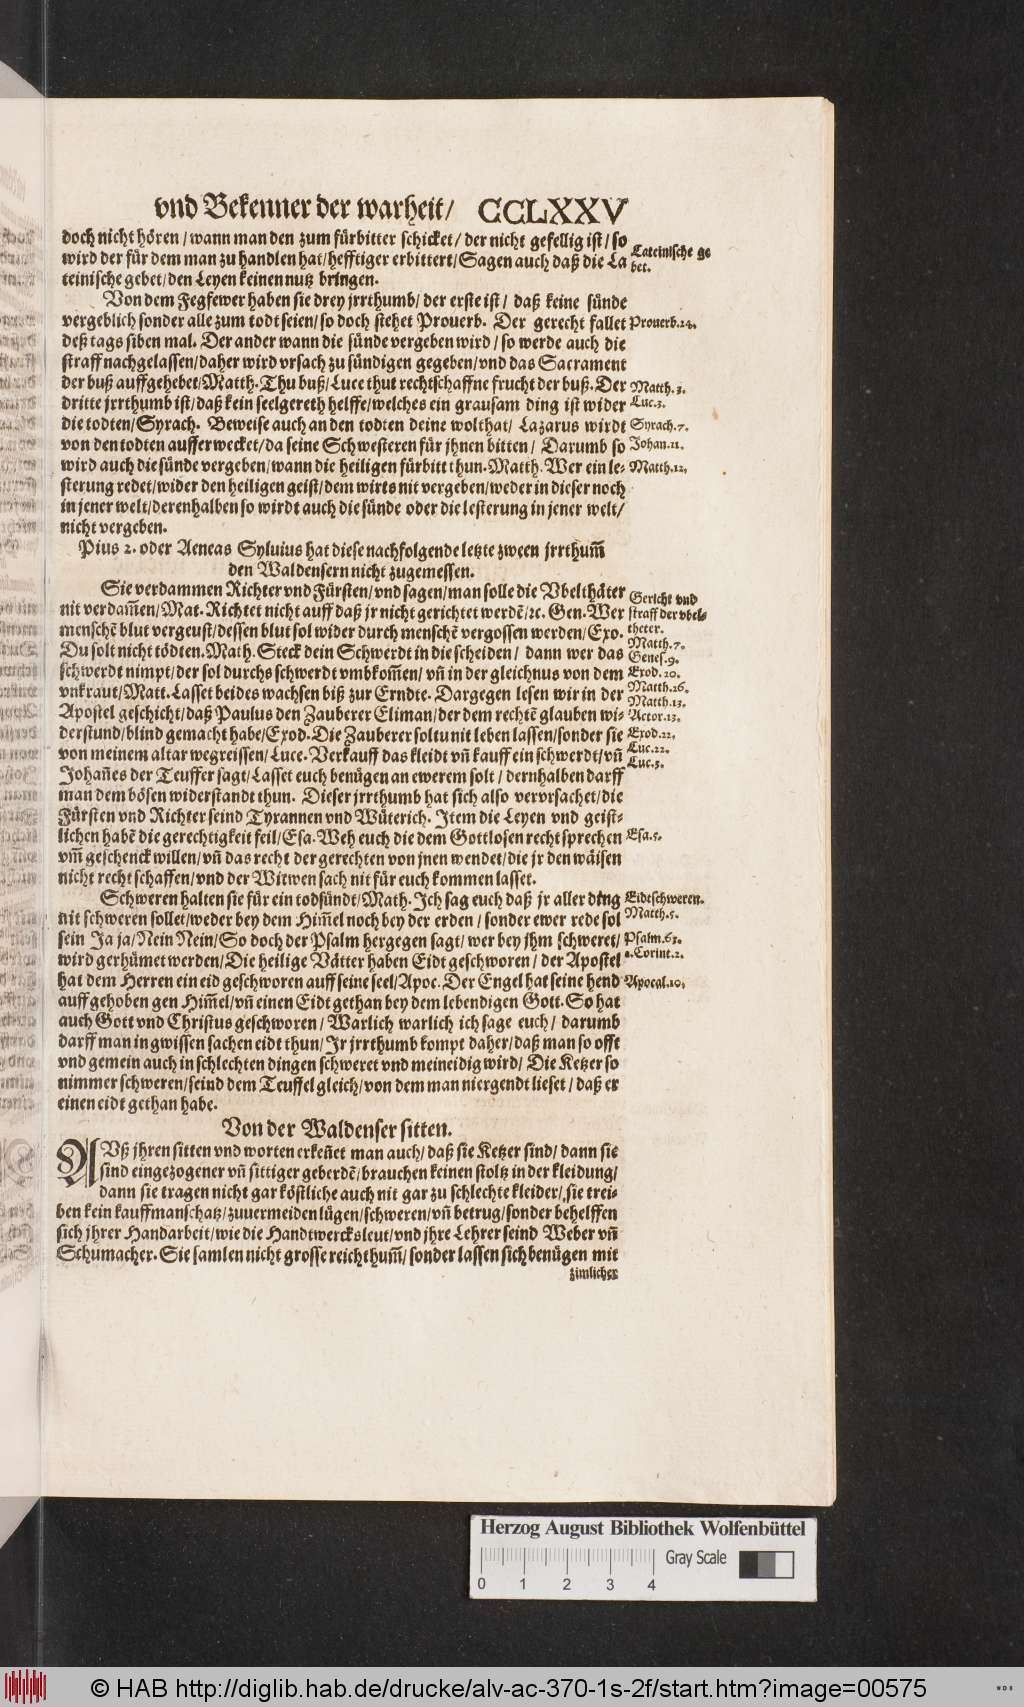 vnd Bekenner der warheit/ CCLXXV
doch nicht hören/wann man den zum fürbitter schicket/der nicht gefellig ist/so
wird der für dem man zu handlen hat/hefftiger erbittert/Sagen auch daß die La
Lateinische ge
bet.
teinische gebet/den Leyen keinen nutz bringen.
Von dem Fegfewer haben sie drey jrrthumb/ der erste ist/ daß keine sünde
vergeblich sonder alle zum todt seien/so doch stehet Prouerb. Der gerecht fallet
Prouerb.24.
deß tags siben mal. Der ander wann die sünde vergeben wird/so werde auch die
straff nachgelassen/daher wird vrsach zu sündigen gegeben/vnd das Sacrament
der buß auffgehebet/Matth. Thu buß/Luce thut rechtschaffne frucht der buß. Der
Matth.3.
dritte jrrthumb ist/daß kein seelgereth helffe/welches ein grausam ding ist wider
Luc.3.
die todten/Syrach. Beweise auch an den todten deine wolthat/ Lazarus wirdt
Syrach.7.
von den todten aufferwecket/da seine Schwesteren für jhnen bitten/ Darumb so
Johan.11.
wird auch die sünde vergeben/wann die heiligen fürbitt thun. Matth. Wer ein le-
Matth.12.
sterung redet/wider den heiligen geist/dem wirts nit vergeben/weder in dieser noch
in jener welt/derenhalben so wirdt auch die sünde oder die lesterung in jener welt/
nicht vergeben.
Pius 2. oder Aeneas Syluius hat diese nachfolgende letzte zween jrrthum̃
den Waldensern nicht zugemessen.
Sie verdammen Richter vnd Fürsten/vnd sagen/man solle die Vbelthäter
Gericht vnd
straff der vbel-
theter.
nit verdam̃en/Mat. Richtet nicht auff daß jr nicht gerichtet werdẽ/ꝛc. Gen. Wer
menschẽ blut vergeust/dessen blut sol wider durch menschẽ vergossen werden/Exo.
Matth.7.
Du solt nicht tödten. Math. Steck dein Schwerdt in die scheiden/ dann wer das
Genes.9.
schwerdt nimpt/der sol durchs schwerdt vmbkom̃en/ vñ in der gleichnus von dem
Exod.20.
vnkraut/Matt. Lasset beides wachsen biß zur Erndte. Dargegen lesen wir in der
Matth.26.
Matth.13.
Apostel geschicht/daß Paulus den Zauberer Eliman/der dem rechtẽ glauben wi-
Actor.13.
derstund/blind gemacht habe/Exod. Die Zauberer soltu nit leben lassen/sonder sie
Exod.22.
von meinem altar wegreissen/Luce. Verkauff das kleidt vñ kauff ein schwerdt/vñ
Luc.22.
Johañes der Teuffer sagt/Lasset euch benügen an ewerem solt/ dernhalben darff
Luc.3.
man dem bösen widerstandt thun. Dieser jrrthumb hat sich also vervrsachet/die
Fürsten vnd Richter seind Tyrannen vnd Wüterich. Item die Leyen vnd geist-
lichen habẽ die gerechtigkeit feil/Esa. Weh euch die dem Gottlosen recht sprechen
Esa.5.
vm̃ geschenck willen/vñ das recht der gerechten von jnen wendet/die jr den wäisen
nicht recht schaffen/vnd der Witwen sach nit für euch kommen lasset.
Schweren halten sie für ein todsündt/Math. Ich sag euch daß jr aller ding
Eidtschweren.
nit schweren sollet/weder bey dem Him̃el noch bey der erden/sonder ewer rede sol
Matth.5.
sein Ja ja/Nein Nein/So doch der Psalm hergegen sagt/wer bey jhm schweret/
Psalm.63.
wird gerhümet werden/Die heilige Vätter haben Eidt geschworen/ der Apostel
2.Corint.2.
hat dem Herren ein eid geschworen auff seine seel/Apoc. Der Engel hat seine hend
Apocal.10.
auffgehoben gen Him̃el/vñ einen Eidt gethan bey dem lebendigen Gott. So hat
auch Gott vnd Christus geschworen/ Warlich warlich ich sage euch/ darumb
darff man in gwissen sachen eidt thun/Ir jrrthumb kompt daher/daß man so offt
vnd gemein auch in schlechten dingen schweret vnd meineidig wird/ Die Ketzer so
nimmer schweren/seind dem Teuffel gleich/von dem man niergendt lieset/ daß er
einen eidt gethan habe.
Von der Waldenser sitten.
AVß jhren sitten vnd worten erkeñet man auch/daß sie Ketzer sind/dann sie
sind eingezogener vñ sittiger geberdẽ/brauchen keinen stoltz in der kleidung/
dann sie tragen nicht gar köstliche auch nit gar zu schlechte kleider/sie trei-
ben kein kauffmanschatz/zuuermeiden lügen/schweren/vñ betrug/sonder behelffen
sich jhrer Handarbeit/wie die Handtwercksleut/vnd jhre Lehrer seind Weber vñ
Schumacher. Sie samlen nicht grosse reichthum̃/sonder lassen sich benügen mit
zimlicher
Herzog August Bibliothek Wolfenbüttel
Gray Scale
0 1 2 3 4
© HAB http://diglib.hab.de/drucke/alv-ac-370-1s-2f/start.htm?image=00575